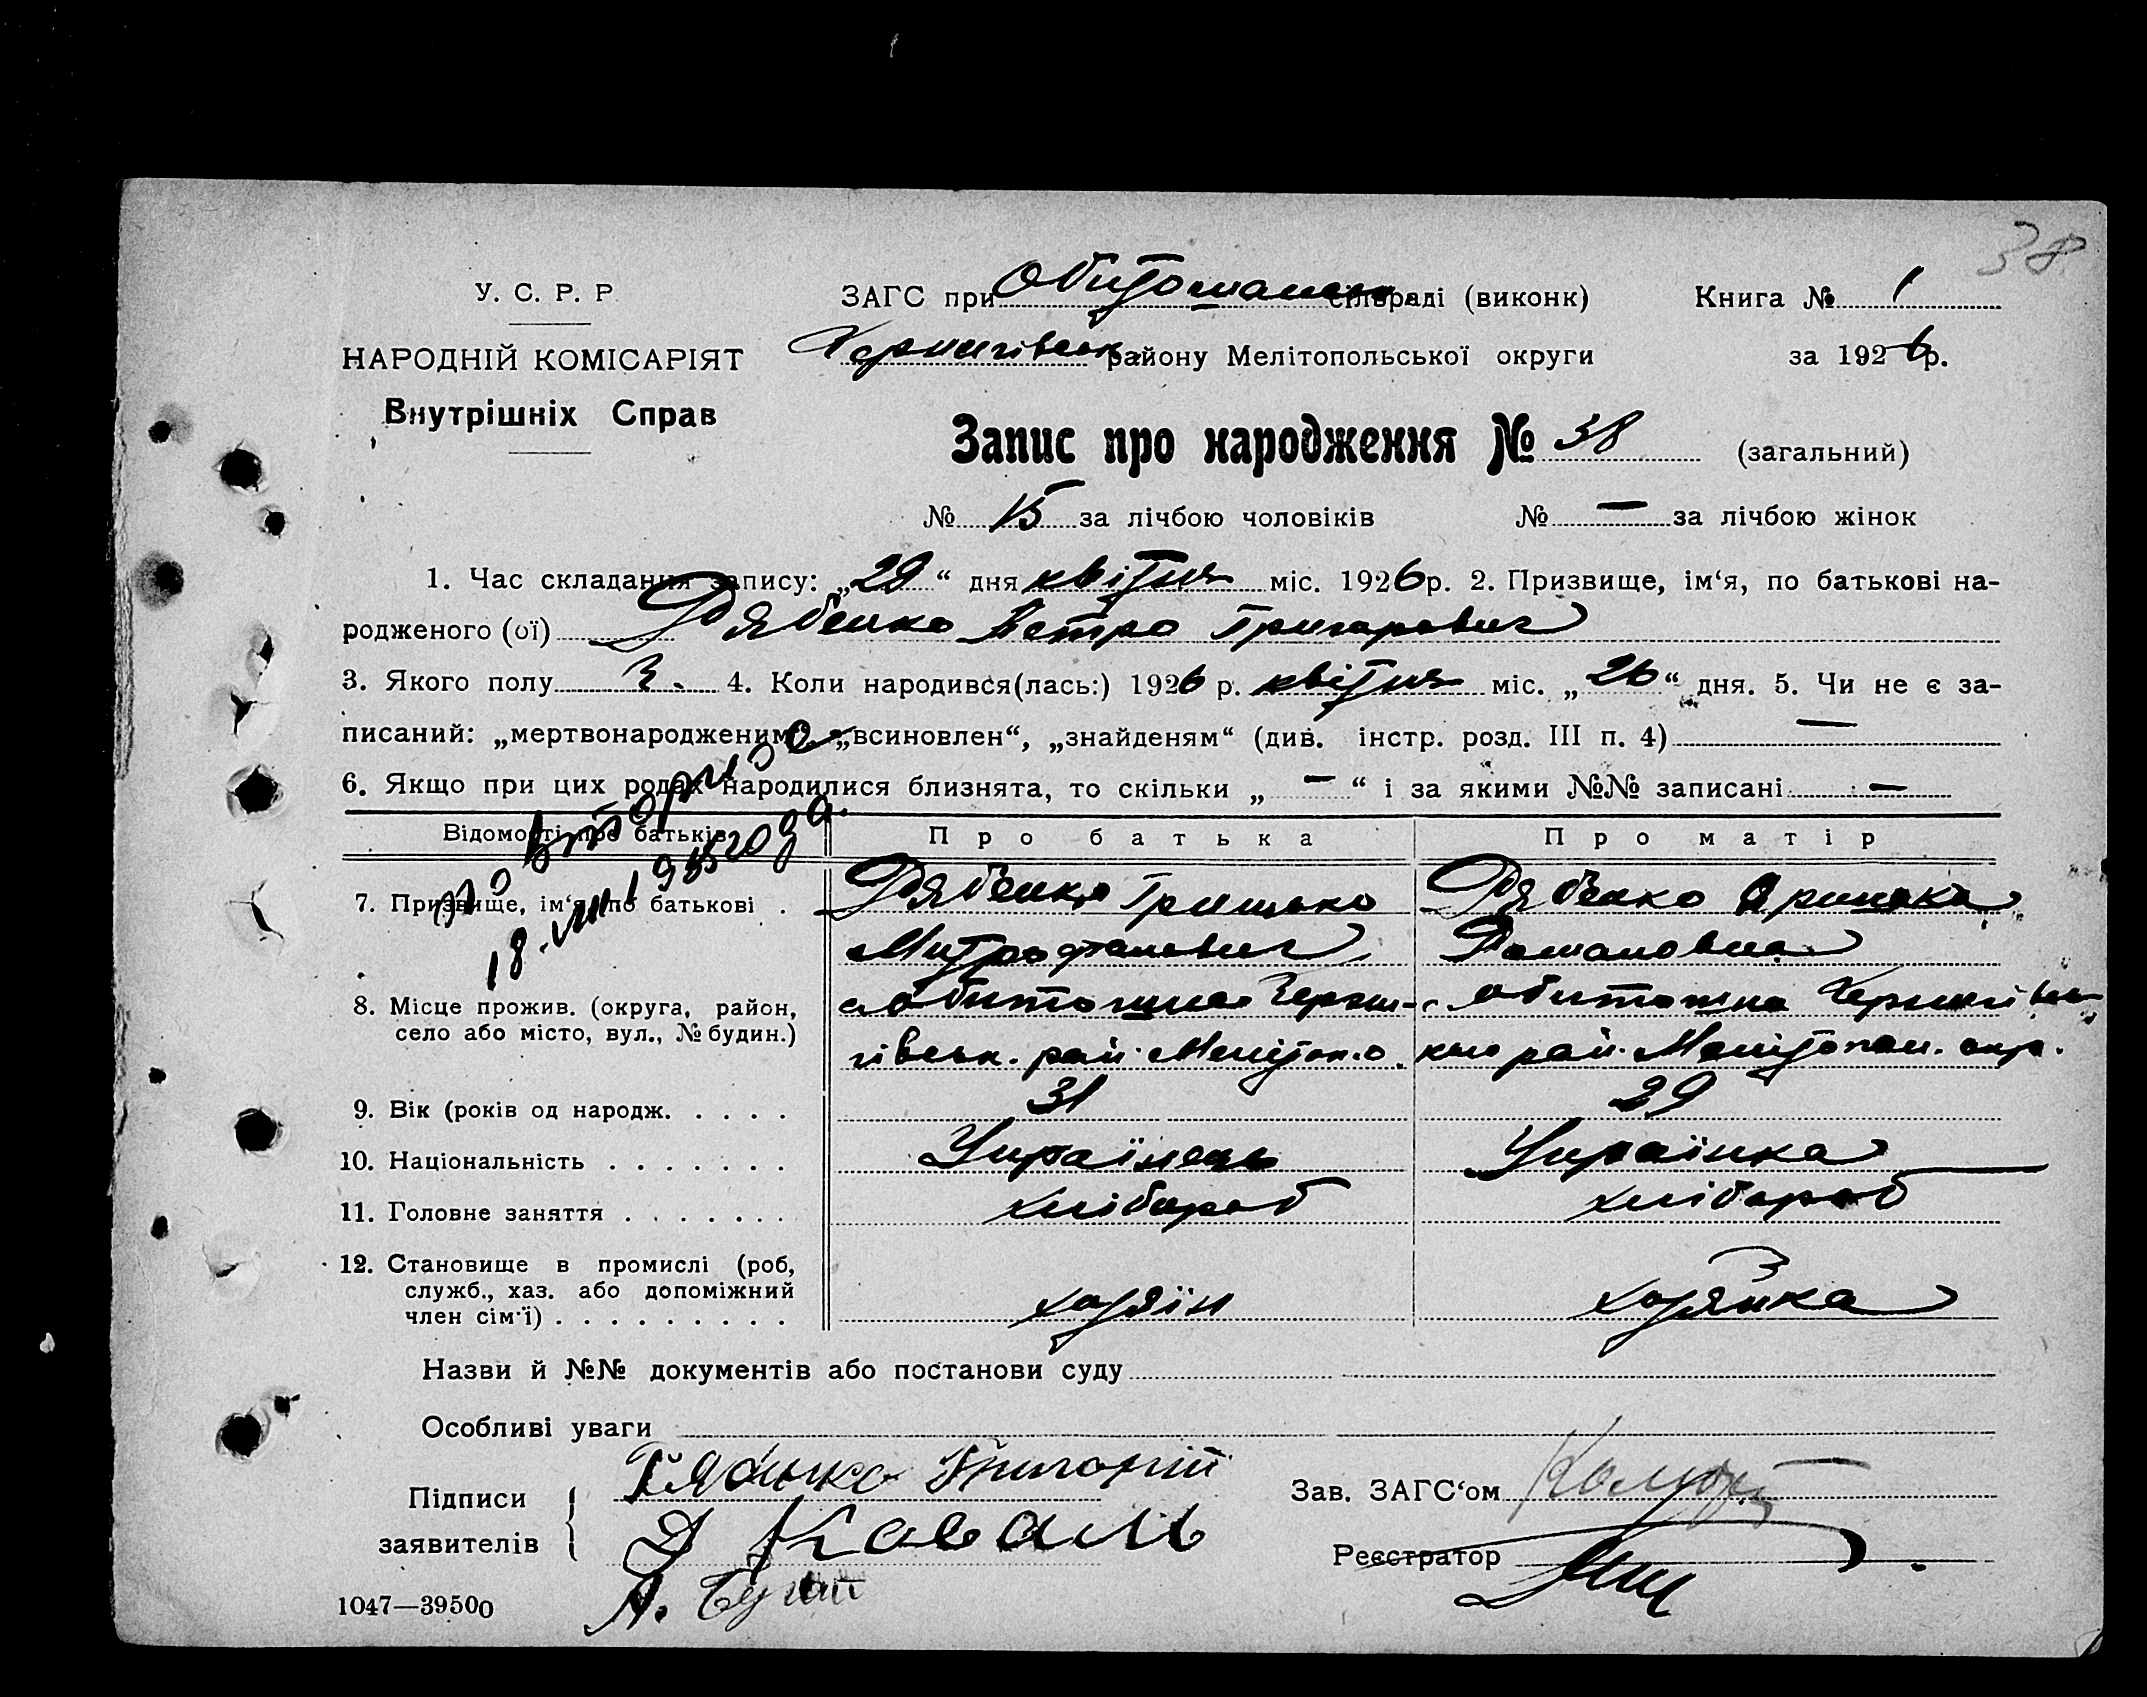 38
У. С. Р. Р
ЗАГС при Обиточанськ сільраді (виконк)
Книга № 1
НАРОДНІЙ КОМІСАРІЯТ
Чернигівськ району Мелітопольської округи
за 1926 р.
Внутрішніх Справ
Запис про народження № 38 (загальний)
№ 15 за лічбою чоловіків № — за лічбою жінок
1. Час складання запису: „29“ дня квітня міс. 1926 р. 2. Призвище, ім‘я, по батькові на-
родженого (ої) Рябенко Петро Григорович
3. Якого полу ч. 4. Коли народився(лась:) 1926 р. квітня міс. „26“ дня. 5. Чи не є за-
писаний: „мертвонародженим“, „всиновлен“, „знайденям“ (див. інстр. розд. III п. 4) —
6. Якщо при цих родах народилися близнята, то скільки „ — “ і за якими №№ записані —
Відомості про батьків Про батька Про матір
вторно
18. 195 года.
7. Призвище, ім‘я, по батькові . Рябенко Гришько Рябенко Яринка
Митрофанович Романовна
8. Місце прожив. (округа, район, с Обиточна Черни- с Обиточна Чернигівсь-
село або місто, вул., № будин.) гівськ. рай. Мелітоп. о. кого рай. Мелітопол. окр.
9. Вік (років од народж. . . . . 31 29
10. Національність . . . . . . . Українець Українка
11. Головне заняття . . . . . . . хлібороб хлібороб
12. Становище в промислі (роб,
служб., хаз. або допоміжний
член сім‘ї) . . . . . . . . . хозяїн хозяйка
Назви й №№ документів або постанови суду
Особливі уваги
Підписи
заявителів
Рябенко Григорий
Д Коваль
А.
Зав. ЗАГС‘ом
Реєстратор
1047—39500